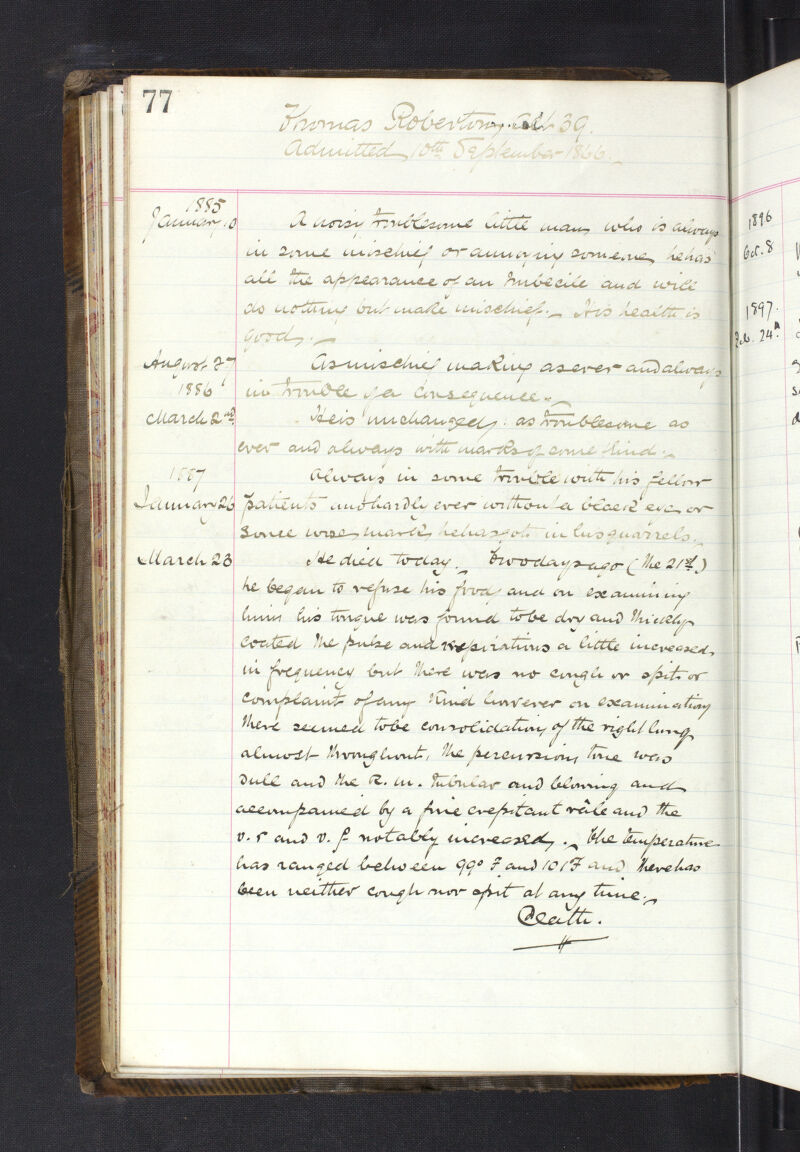 77
Thomas Robertson, Aet 39.
Admitted 10th September 1866.
1885
January 10 A noisy troublesome little man, who is always
in some mischief or annoying someone, he has
all the appearance of an Imbecile and will
do nothing but make mischief. His health is
good.
August 27 As mischief making as ever and always
in trouble as a consequence.
1886
March 2nd He is unchanged: as troublesome as
ever and always with marks of some kind.
1887 Always in some trouble with his fellow
January 26 patients and hardly ever without a black eye or
some mark he has got in his quarrels.
March 23 He died today. Two days ago (the 21st)
he began to refuse his food, and on examining
him his tongue was found to be dry and thickly
coated the pulse and respirations a little increased
in frequency but there was no cough or spit or
complaint of any kind however on examination
there seemed to be consolidation of the right lung
almost throughout, the percussion tone was
dull and the R. m. tubular and blowing and
accompanied by a fine crepitant râle and the
v. r and v. f notably increased. The temperature
has ranged between 99° F and 101 F and there has
been neither cough nor spit at any time.
Death.
1896
Oct. 8
1897.
Feb. 24.